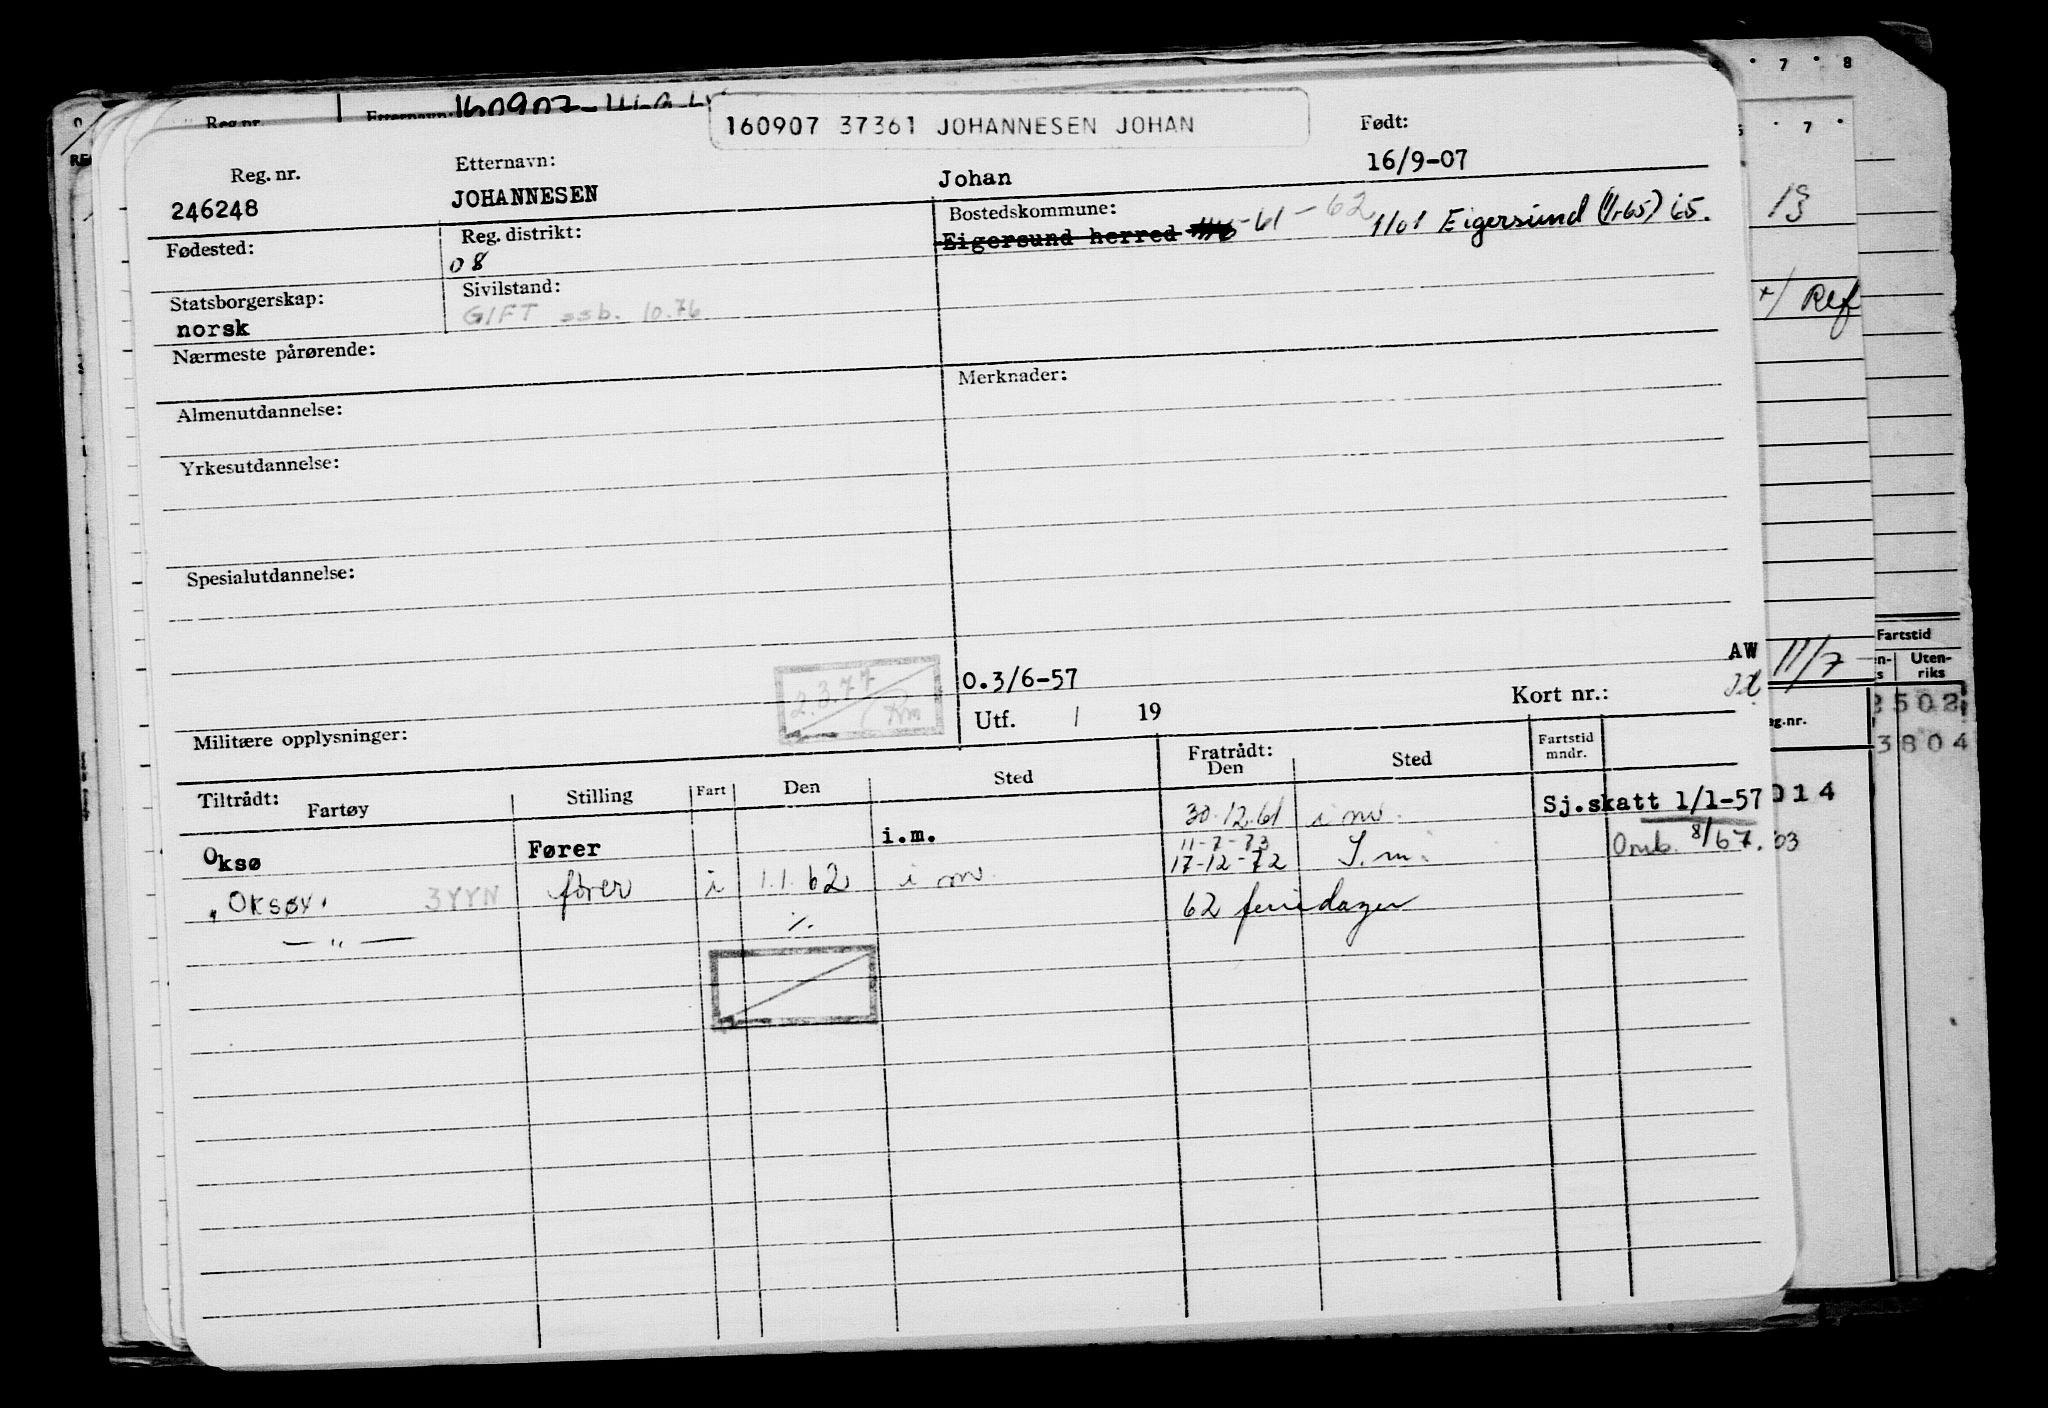 Reg.nr.
160907 37361 JOHANNESEN JOHAN
Reg. nr. Etternavn: Født:
246248 JOHANNESEN Johan 16/9-07
Fødested: Reg. distrikt: Bostedskommune:
08 Eigersund herred -61-62 1101 Eigersund (1/1-65) 65.
Statsborgerskap: Sivilstand:
norsk GIFT ssb. 10.76
Nærmeste pårørende:
Almenutdannelse: Merknader:
Yrkesutdannelse:
Spesialutdannelse:
2.3.77 Km
O.3/6-57 AW
Militære opplysninger: Utf. / 19 Kort nr.:
Tiltrådt: Fratrådt:
Fartøy Stilling Fart Den Sted Den Sted Fartstid mndr.
Oksø Fører i.m. 30.12.61 i m. Sj.skatt 1/1-57
11-7-73
"Oksøy" 3YYN fører i 1.1.62 i m. 17-12-72 I.m. Omb. 8/67.
— " — ./. 62 feriedager
6 7 8
7
13
+/ Ref
11/7
Fartstid
Uten-
riks
2502
3804
014
03